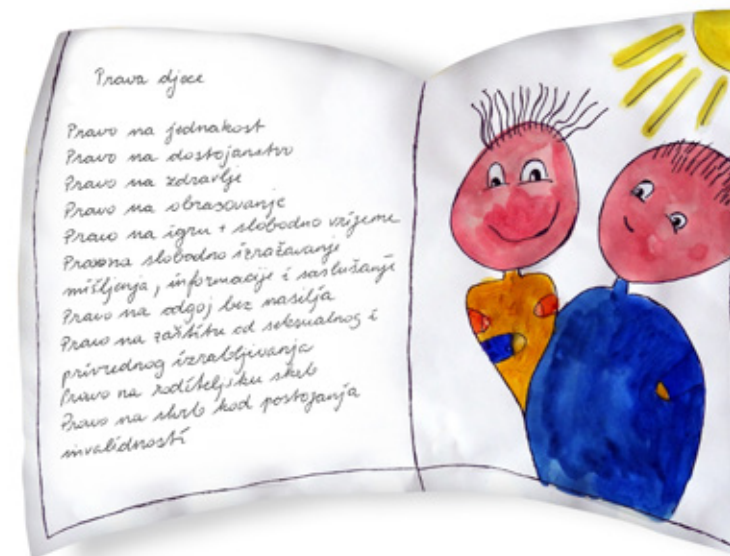 Prava djece
Pravo na jednakost
Pravo na dostojanstvo
Pravo na zdravlje
Pravo na obrasovanje
Pravo na igru + slobodno vrijeme
Pravo na slobodno izražavanje
mišljenja, informacije i saslušanje
Pravo na odgoj bez nasilja
Pravo na zaštitu od seksualnog i
privrednog izrabljivanja
Pravo na roditeljsku skrb
Pravo na skrb kod postojanja
invalidnosti